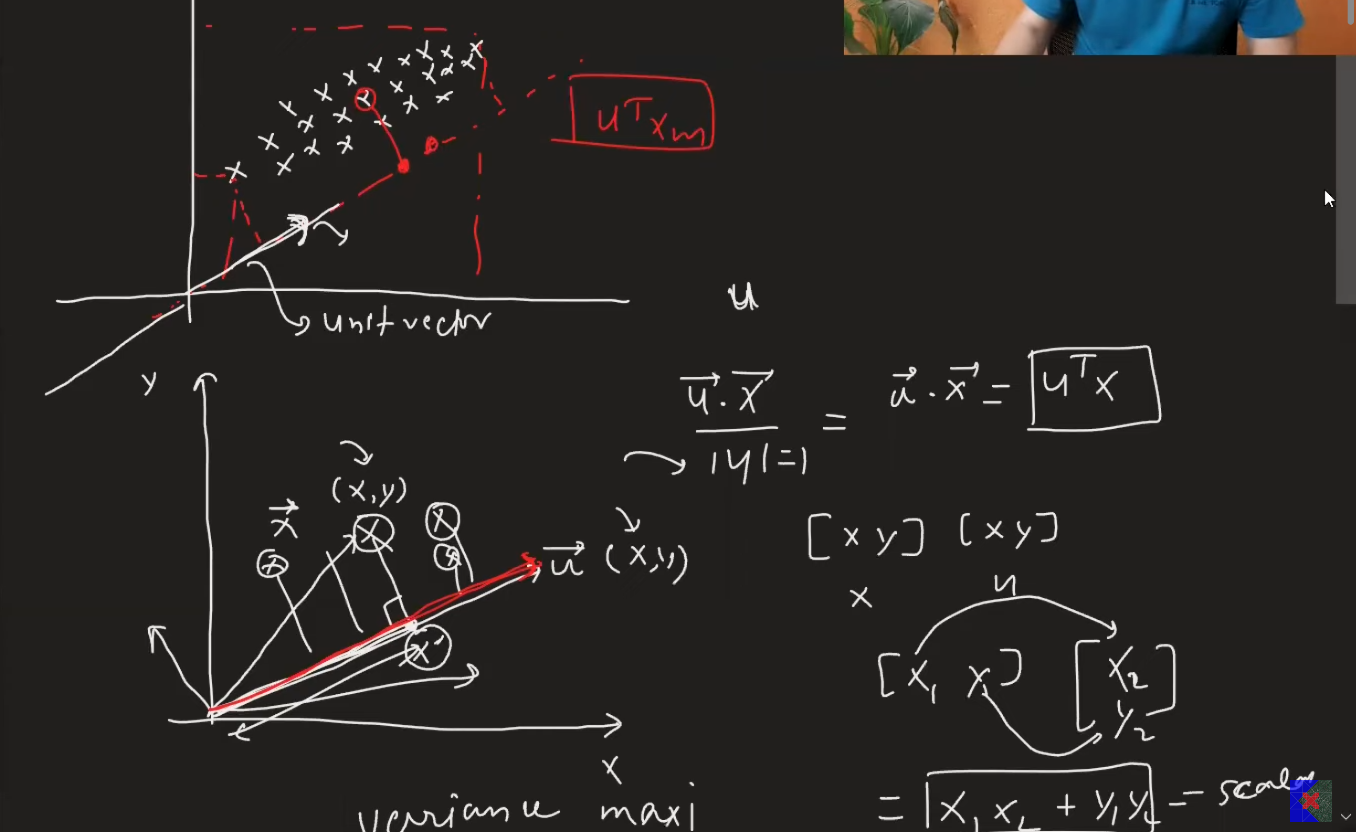 uᵀxₘ
unit vector
u
y
u⃗ · x⃗ / |u| = 1 = u⃗ · x⃗ = uᵀx
(x,y)
x⃗
x
x
x
x
u⃗ (x,y)
x'
[x y] [x y]
x u
[x₁ y₁] [x₂
y₂]
x
= x₁x₂ + y₁y₂ = scalar
variance maxi